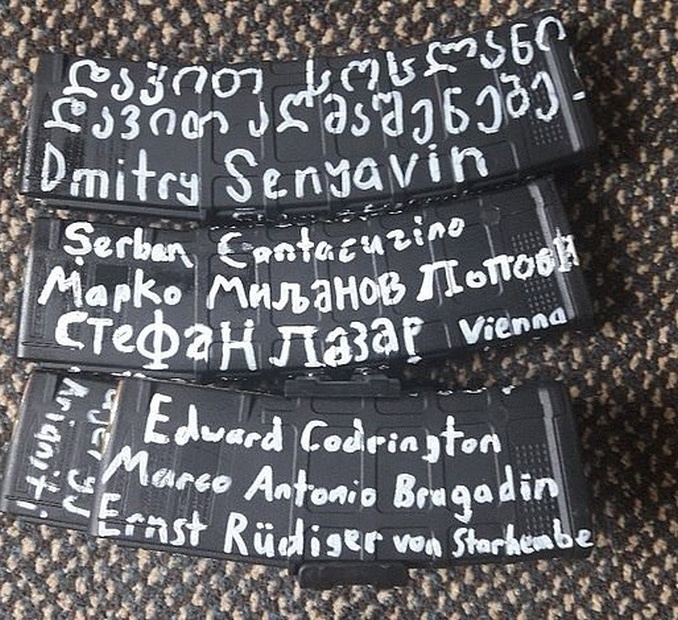 დავით სოსლანი
დავით აღმაშენებე-
Dmitry Senyavin
Șerban Cantacuzino
Марко Миљанов Попови
Стефан Лазар Vienna
Edward Codrington
Marco Antonio Bragadin
Ernst Rüdiger von Starhembe